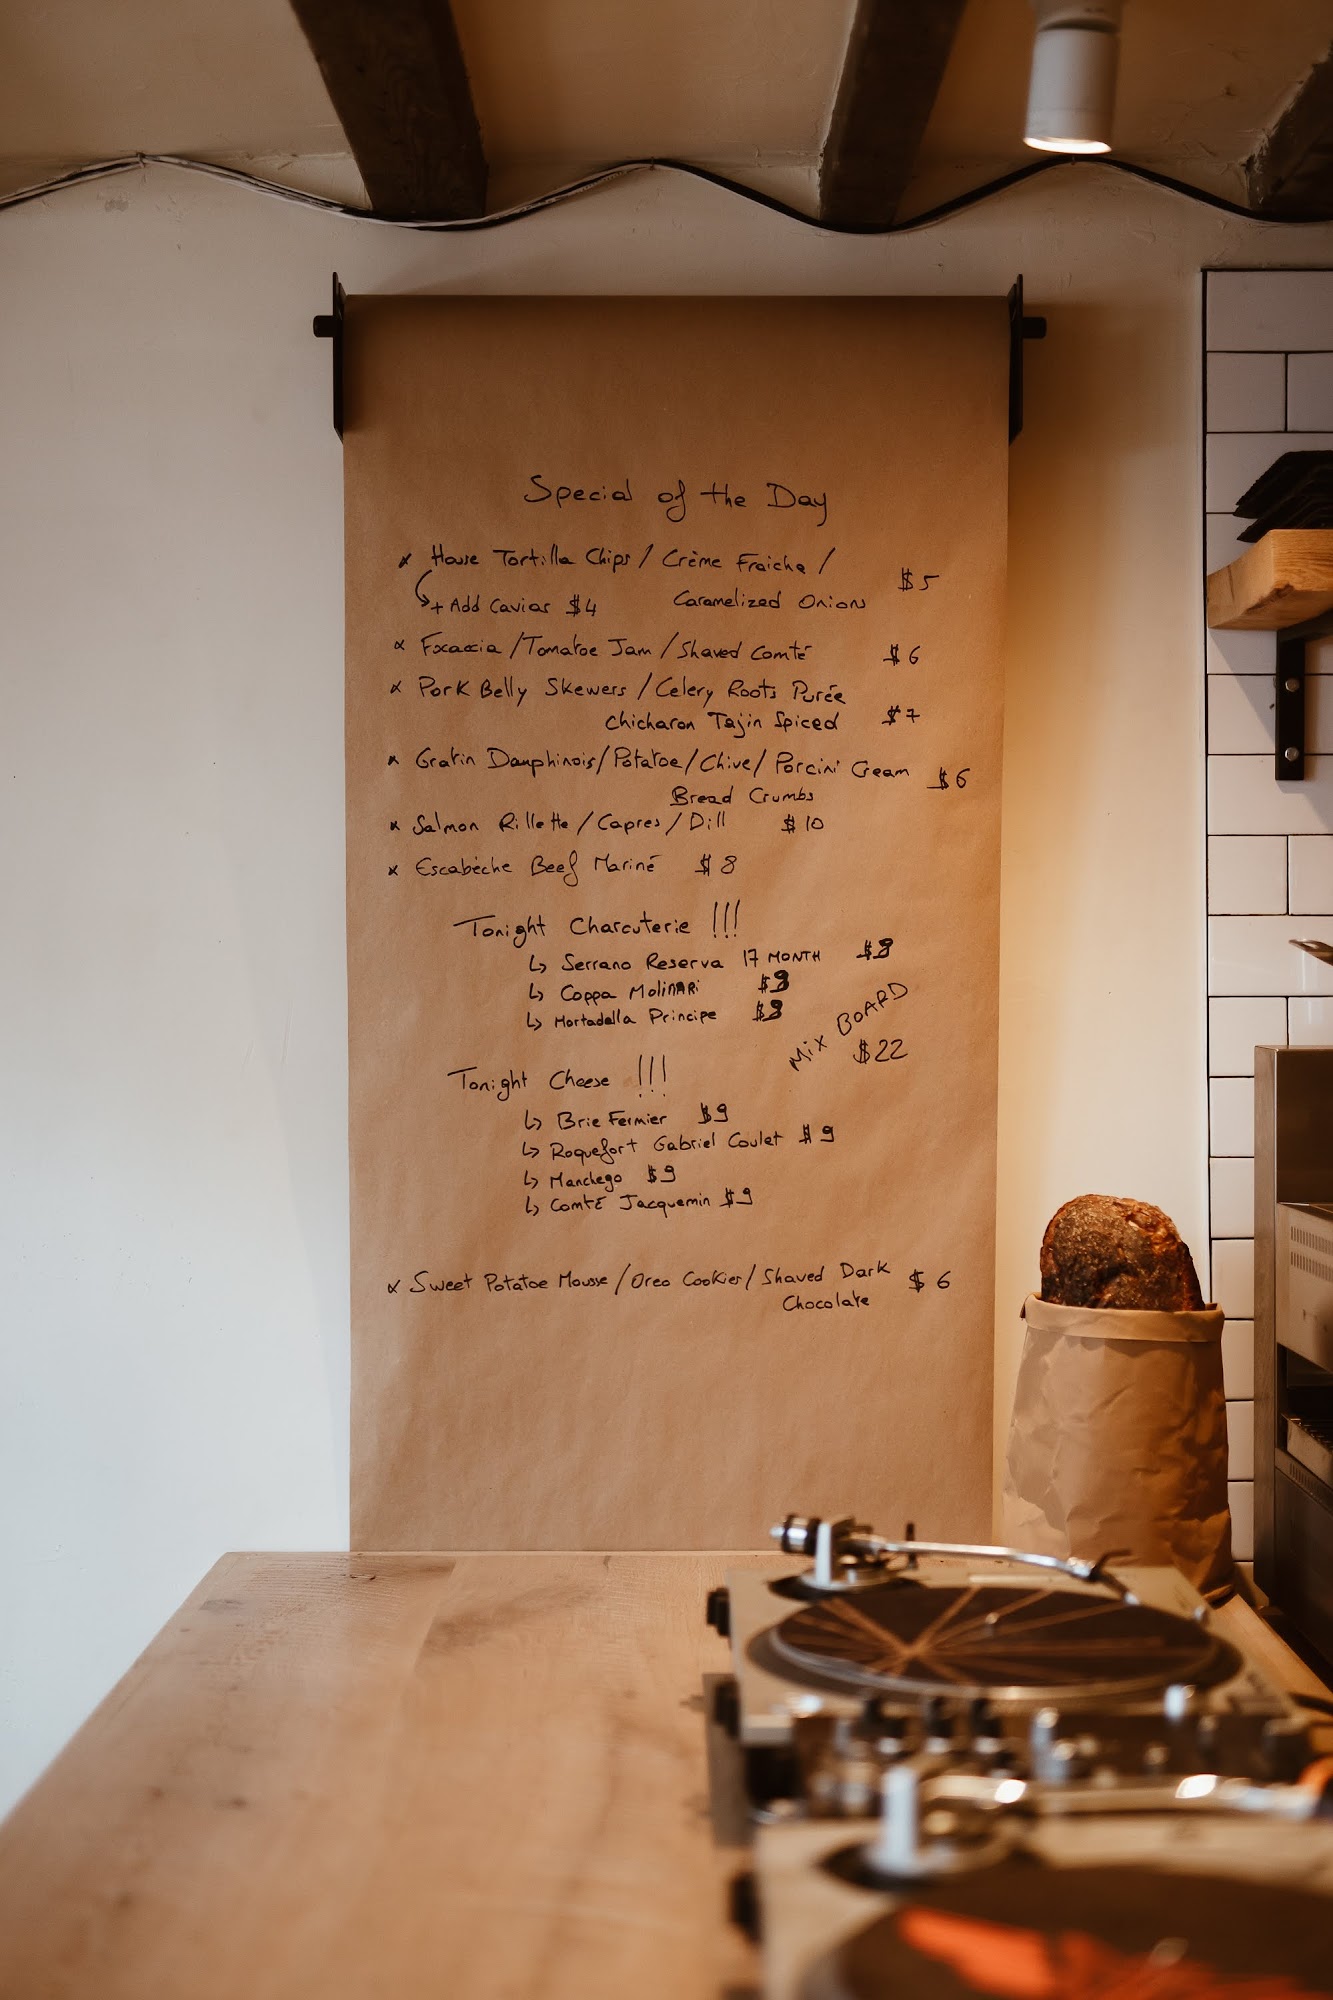 Special of the Day
x House Tortilla Chips / Crème Fraiche / $5
+ Add Caviar $4 Caramelized Onions
x Focaccia / Tomatoe Jam / Shaved Comté $6
x Pork Belly Skewers / Celery Roots Purée
Chicharon Tajin Spiced $7
x Gratin Dauphinois / Potatoe / Chive / Porcini Cream $6
Bread Crumbs
x Salmon Rillette / Capres / Dill $10
x Escabèche Beef Mariné $8
Tonight Charcuterie !!!
↳ Serrano Reserva 17 MONTH
↳ Coppa Molinari
↳ Mortadella Principe
MIX BOARD
$22
Tonight Cheese !!!
↳ Brie Fermier $9
↳ Roquefort Gabriel Coulet $9
↳ Manchego $9
↳ Comté Jacquemin $9
x Sweet Potatoe Mousse / Oreo Cookies / Shaved Dark $6
Chocolate